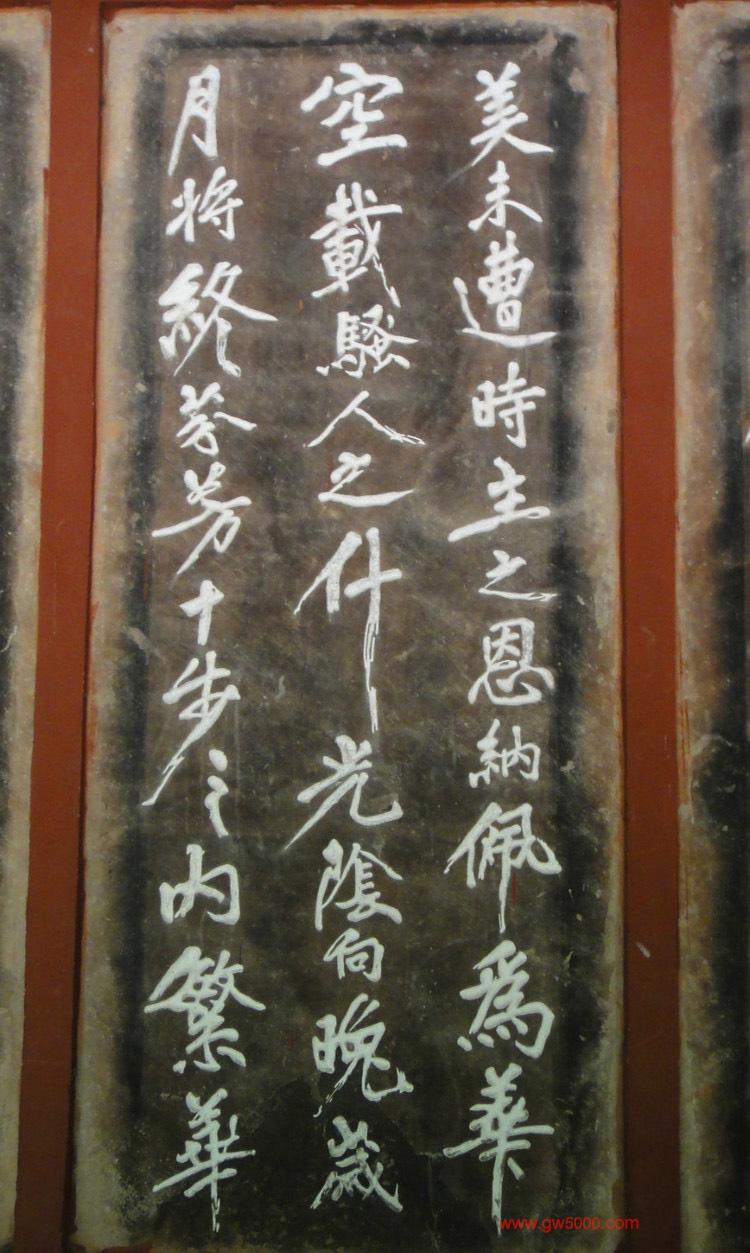 美未遭時主之恩納佩為華
空載騷人之什光陰向晚歲
月將終芬芳十步之內繁華
www.gw5000.com